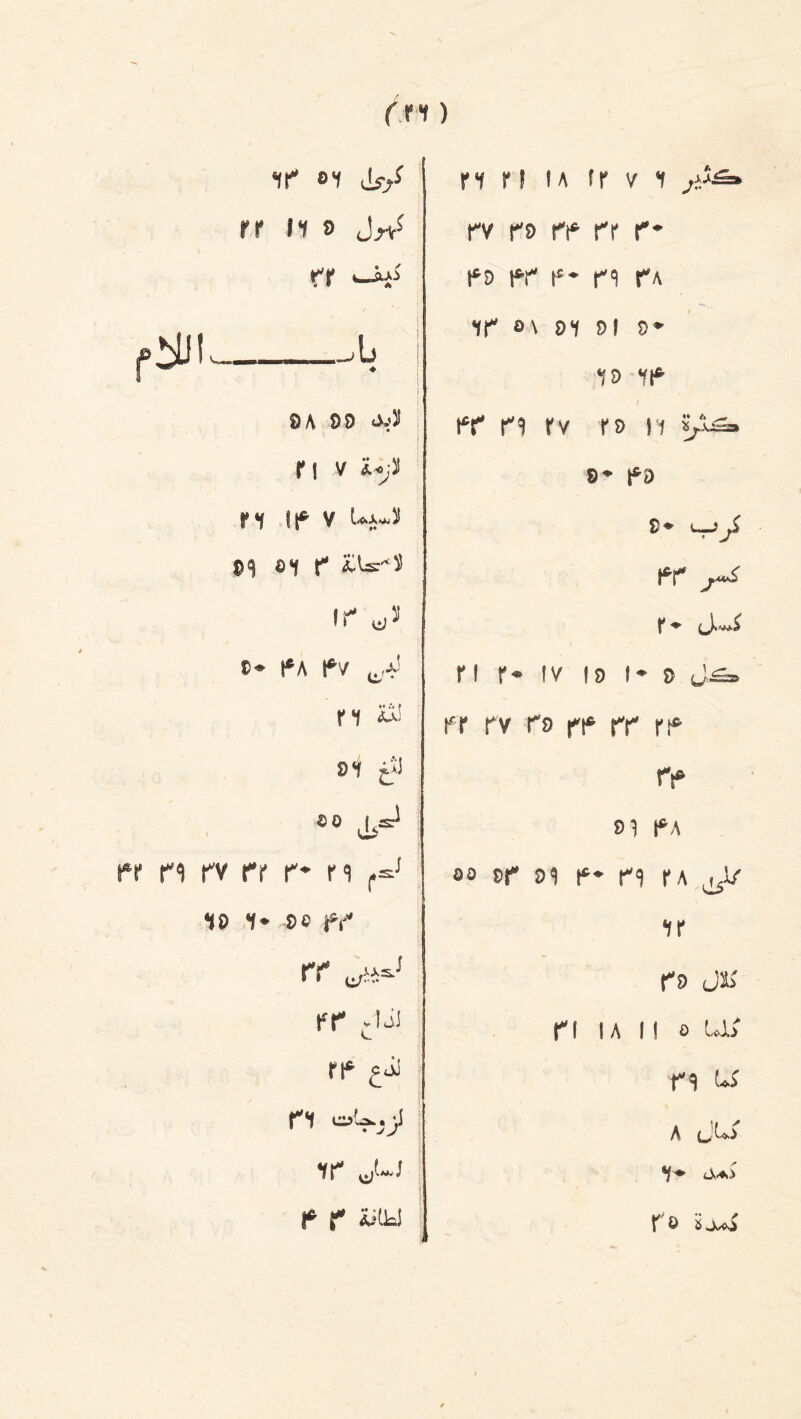 (٢٦)
كثير ٦ ٧ ١٢ ١٨ ٢١ ٢٦
٣٠ ٣٢ ٣٤ ٣٥ ٣٧
٣٨ ٣٩ ٤٠ ٤٣ ٤٥
٥٠ ٥١ ٥٦ ٥٨ ٦٣
٦٤ ٦٥
كثرة ١٦ ٢٥ ٢٧ ٣٩ ٤٣
٤٥ ٥٠
كرب ٥٠
كسر ٤٣
كسل ٢٠
كل ٥ ١٠ ١٥ ١٧ ٢٠ ٢١
٢٤ ٣٣ ٣٤ ٣٥ ٣٧ ٤٢
٣٤
٤٨ ٥٩
كلى ٢٨ ٣٩ ٤٠ ٥٩ ٥٣ ٥٥
٦٢
كلال ٣٥
كلما ٥ ١١ ١٨ ٣١
كما ٣٩
كمال ٨
كمد ٦٠
كمدة ٣٥
٥٦ ٦٣
٥ ١٦ ٢٢
كيف ٣٢
باب اللام
لابد ٥٥ ٥٨
لازمة ٧ ٢١
لاسيما ٧ ١٤ ٢٦
لامحالة ٣ ٥٦ ٥٩
لان ١٣
لبن ٤٧ ٤٨ ٥٠
لثة ٢٦
لثغ ٥٦
٥٥
لحم ٢٩ ٣٠ ٣٢ ٣٧ ٣٩ ٤٢
٤٣ ٥٥ ٦٠ ٦٥
٣٣
لذاع ٤٣
لذع ٢٤
لزوجات ٣٦
لسان ٦٣
لطافة ٣ ٤